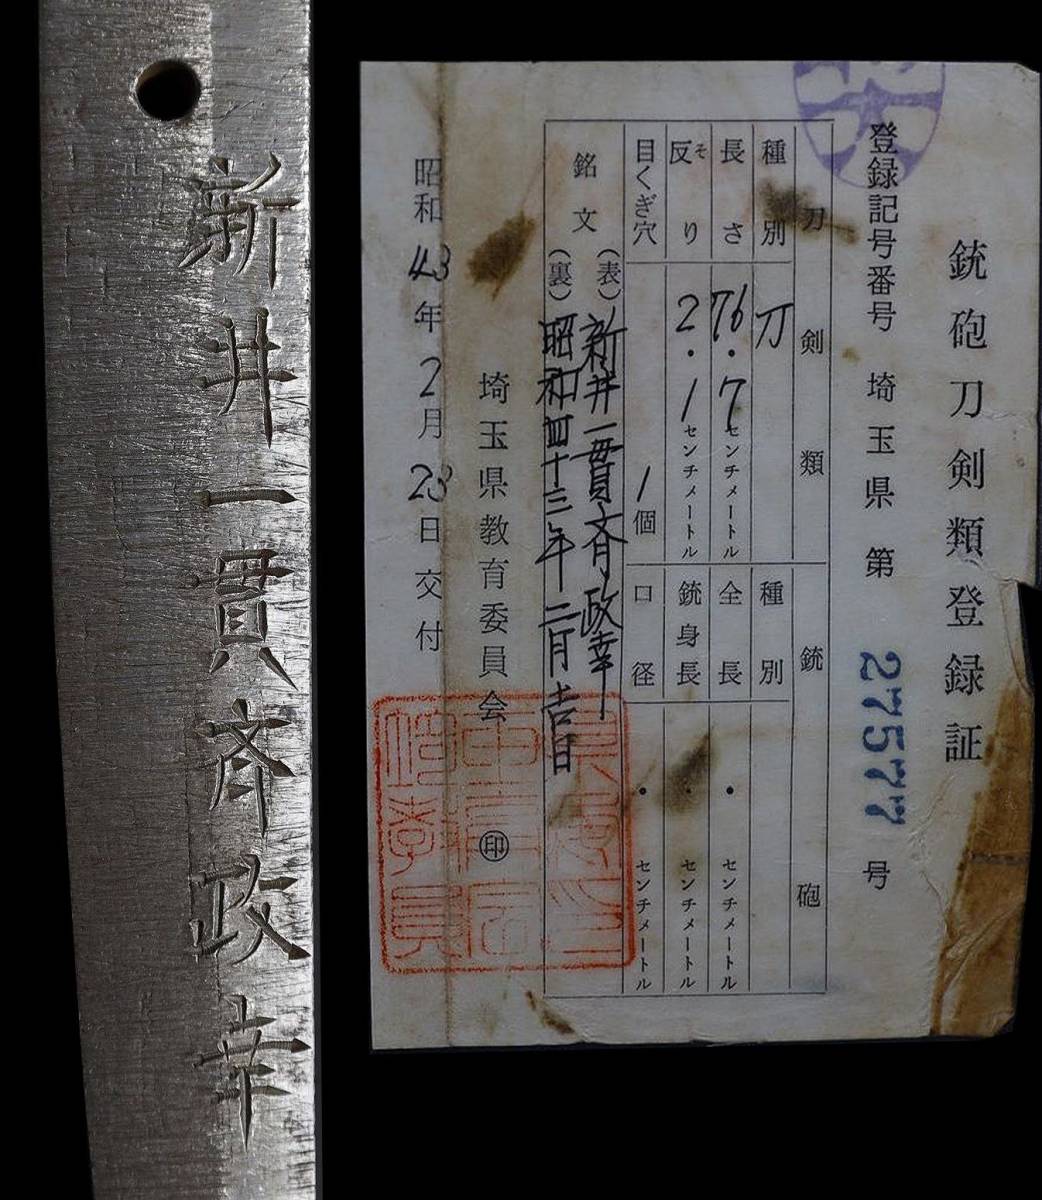 新井一貫斉政幸
銃砲刀剣類登録証
登録記号番号 埼玉県 第 27577 号
刀剣類 銃砲
種別 刀 種別
長さ 76.7センチメートル 全長 . センチメートル
反り そ 2.1センチメートル 銃身長 . センチメートル
目くぎ穴 1個 口径 . センチメートル
銘文 (表) 新井一貫斉政幸
(裏) 昭和四十三年二月吉日
埼玉県教育委員会 ㊞
昭和43年2月28日交付